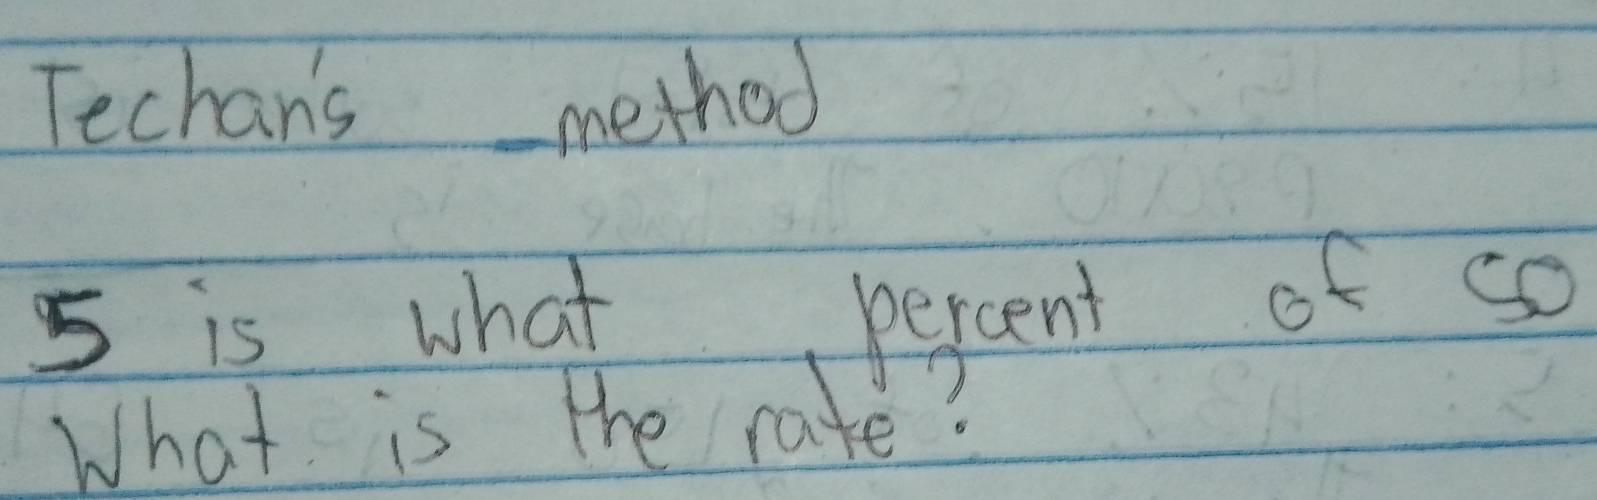 Techan's method
5 is what percent of 50
What is the rate?